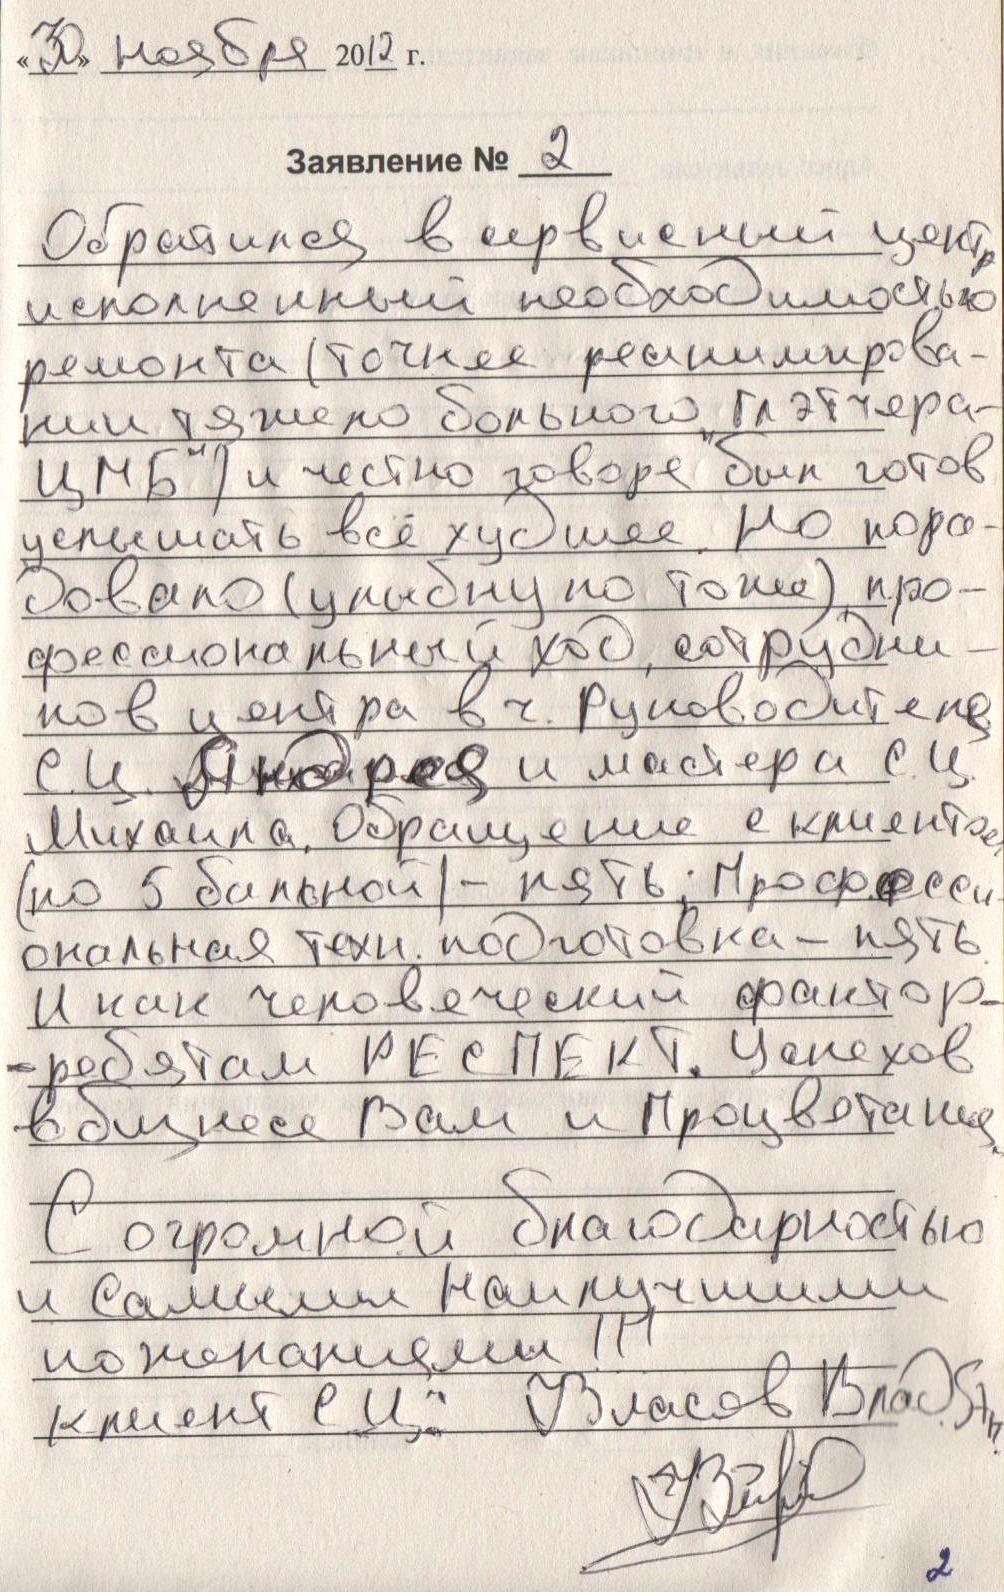 «30» ноября 2012 г.
Заявление № 2
Обратился в сервисный центр
исполненный необходимостью
ремонта (точнее реанимирова-
нии тяжело больного „Глэтчера-
ЦМБ") и честно говоря был готов
услышать всё худшее. Но пора-
довало (улыбнуло тоже) про-
фессиональный ход, сотрудни-
ков центра в ч. Руководителя
С.Ц. Андрея и мастера С.Ц.
Михаила. Обращение с клиентом
(по 5 бальной) - пять; Професси-
ональная техн. подготовка - пять.
И как человеческий фактор-
-ребятам РЕСПЕКТ. Успехов
в бизнесе Вам и Процветания.
С огромной благодарностью
и самыми наилучшими
пожеланиями !!!
клиент С.Ц.: Власов Влад.
2